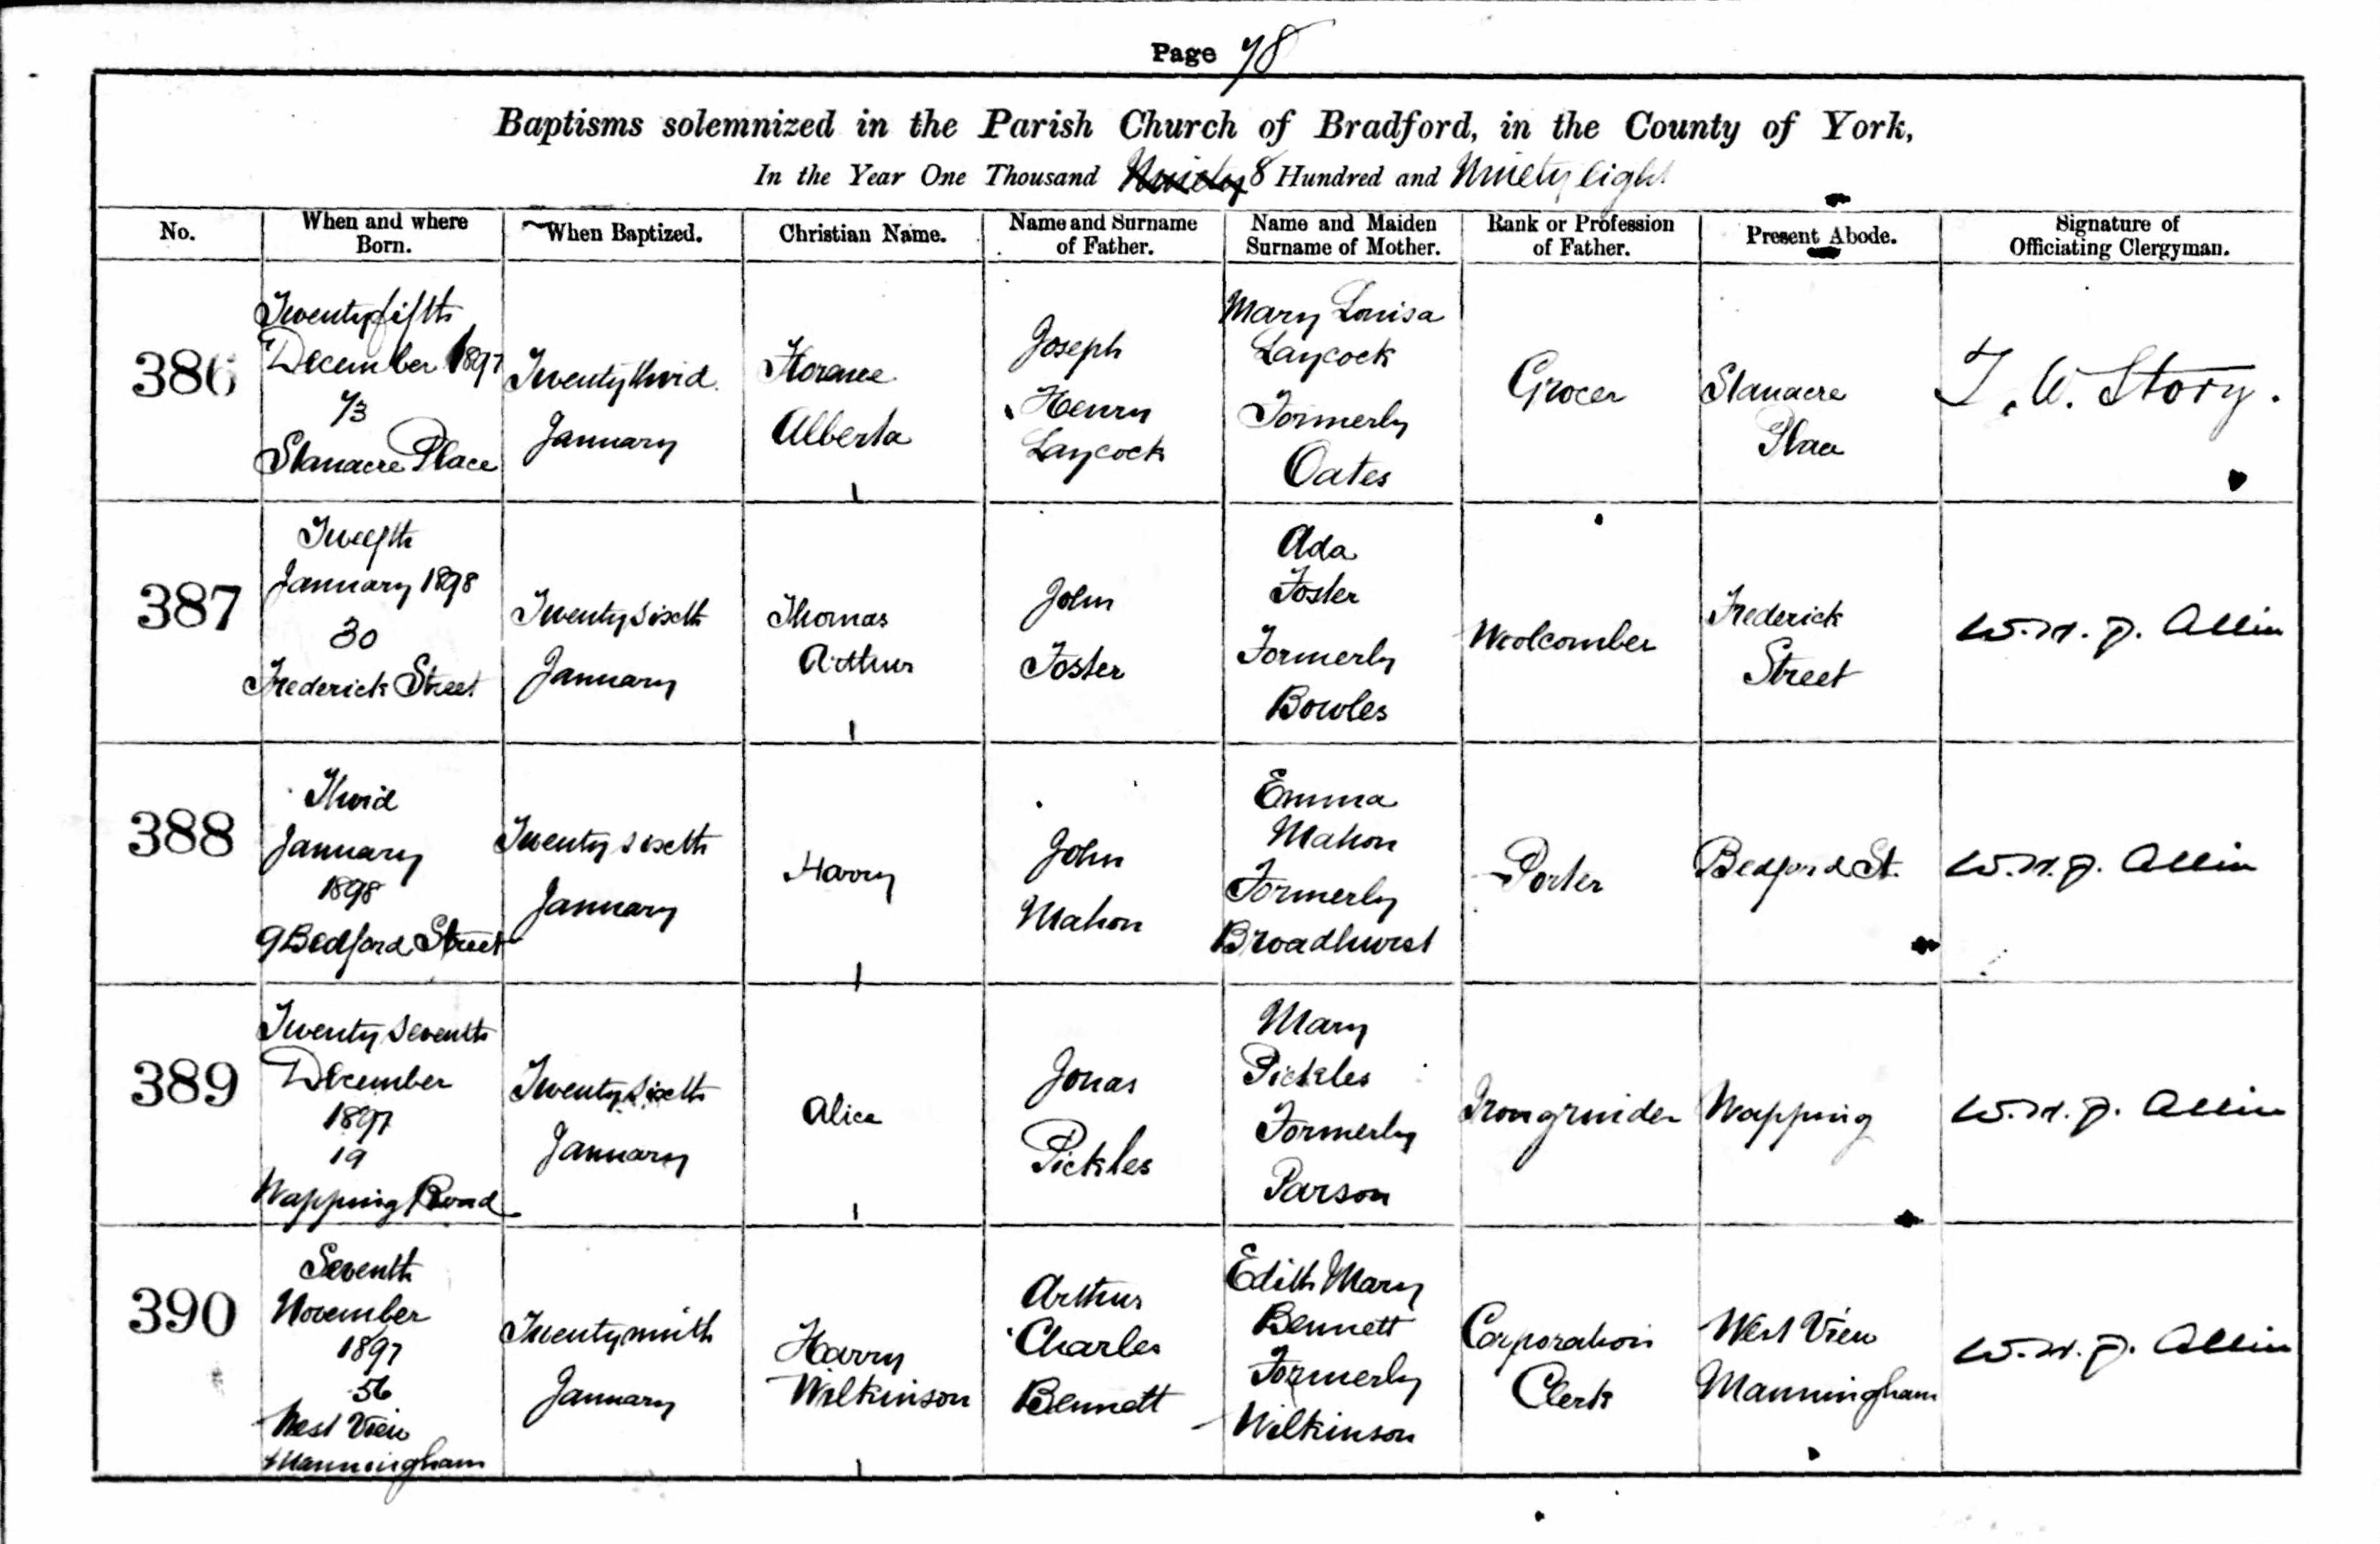 Page 78
Baptisms solemnized in the Parish Church of Bradford, in the County of York,
In the Year One Thousand Ninety 8 Hundred and Ninety eight
No.
When and where
Born.
When Baptized.
Christian Name.
Name and Surname
of Father.
Name and Maiden
Surname of Mother.
Rank or Profession
of Father.
Present Abode.
Signature of
Officiating Clergyman.
386
Twentyfifth
December 1897
73
Stanacre Place
Twentythird
January
Florence
Alberta
Joseph
Henry
Laycock
Mary Louisa
Laycock
Formerly
Oates
Grocer
Stanacre
Place
T. W. Story.
387
Twelfth
January 1898
30
Frederick Street
Twentysixth
January
Thomas
Arthur
John
Foster
Ada
Foster
Formerly
Bowles
Woolcomber
Frederick
Street
W. H. J. Allin
388
Third
January
1898
9 Bedford Street
Twenty sixth
January
Harry
John
Mahon
Emma
Mahon
Formerly
Broadhurst
Porter
Bedford St.
W. H. J. Allin
389
Twenty seventh
December
1897
19
Wapping Road
Twenty sixth
January
Alice
Jonas
Pickles
Mary
Pickles
Formerly
Parson
Irongrinder
Wapping
W. H. J. Allin
390
Seventh
November
1897
56
West View
Manningham
Twentyninth
January
Harry
Wilkinson
Arthur
Charles
Bennett
Edith Mary
Bennett
Formerly
Wilkinson
Corporation
Clerk
West View
Manningham
W. H. J. Allin